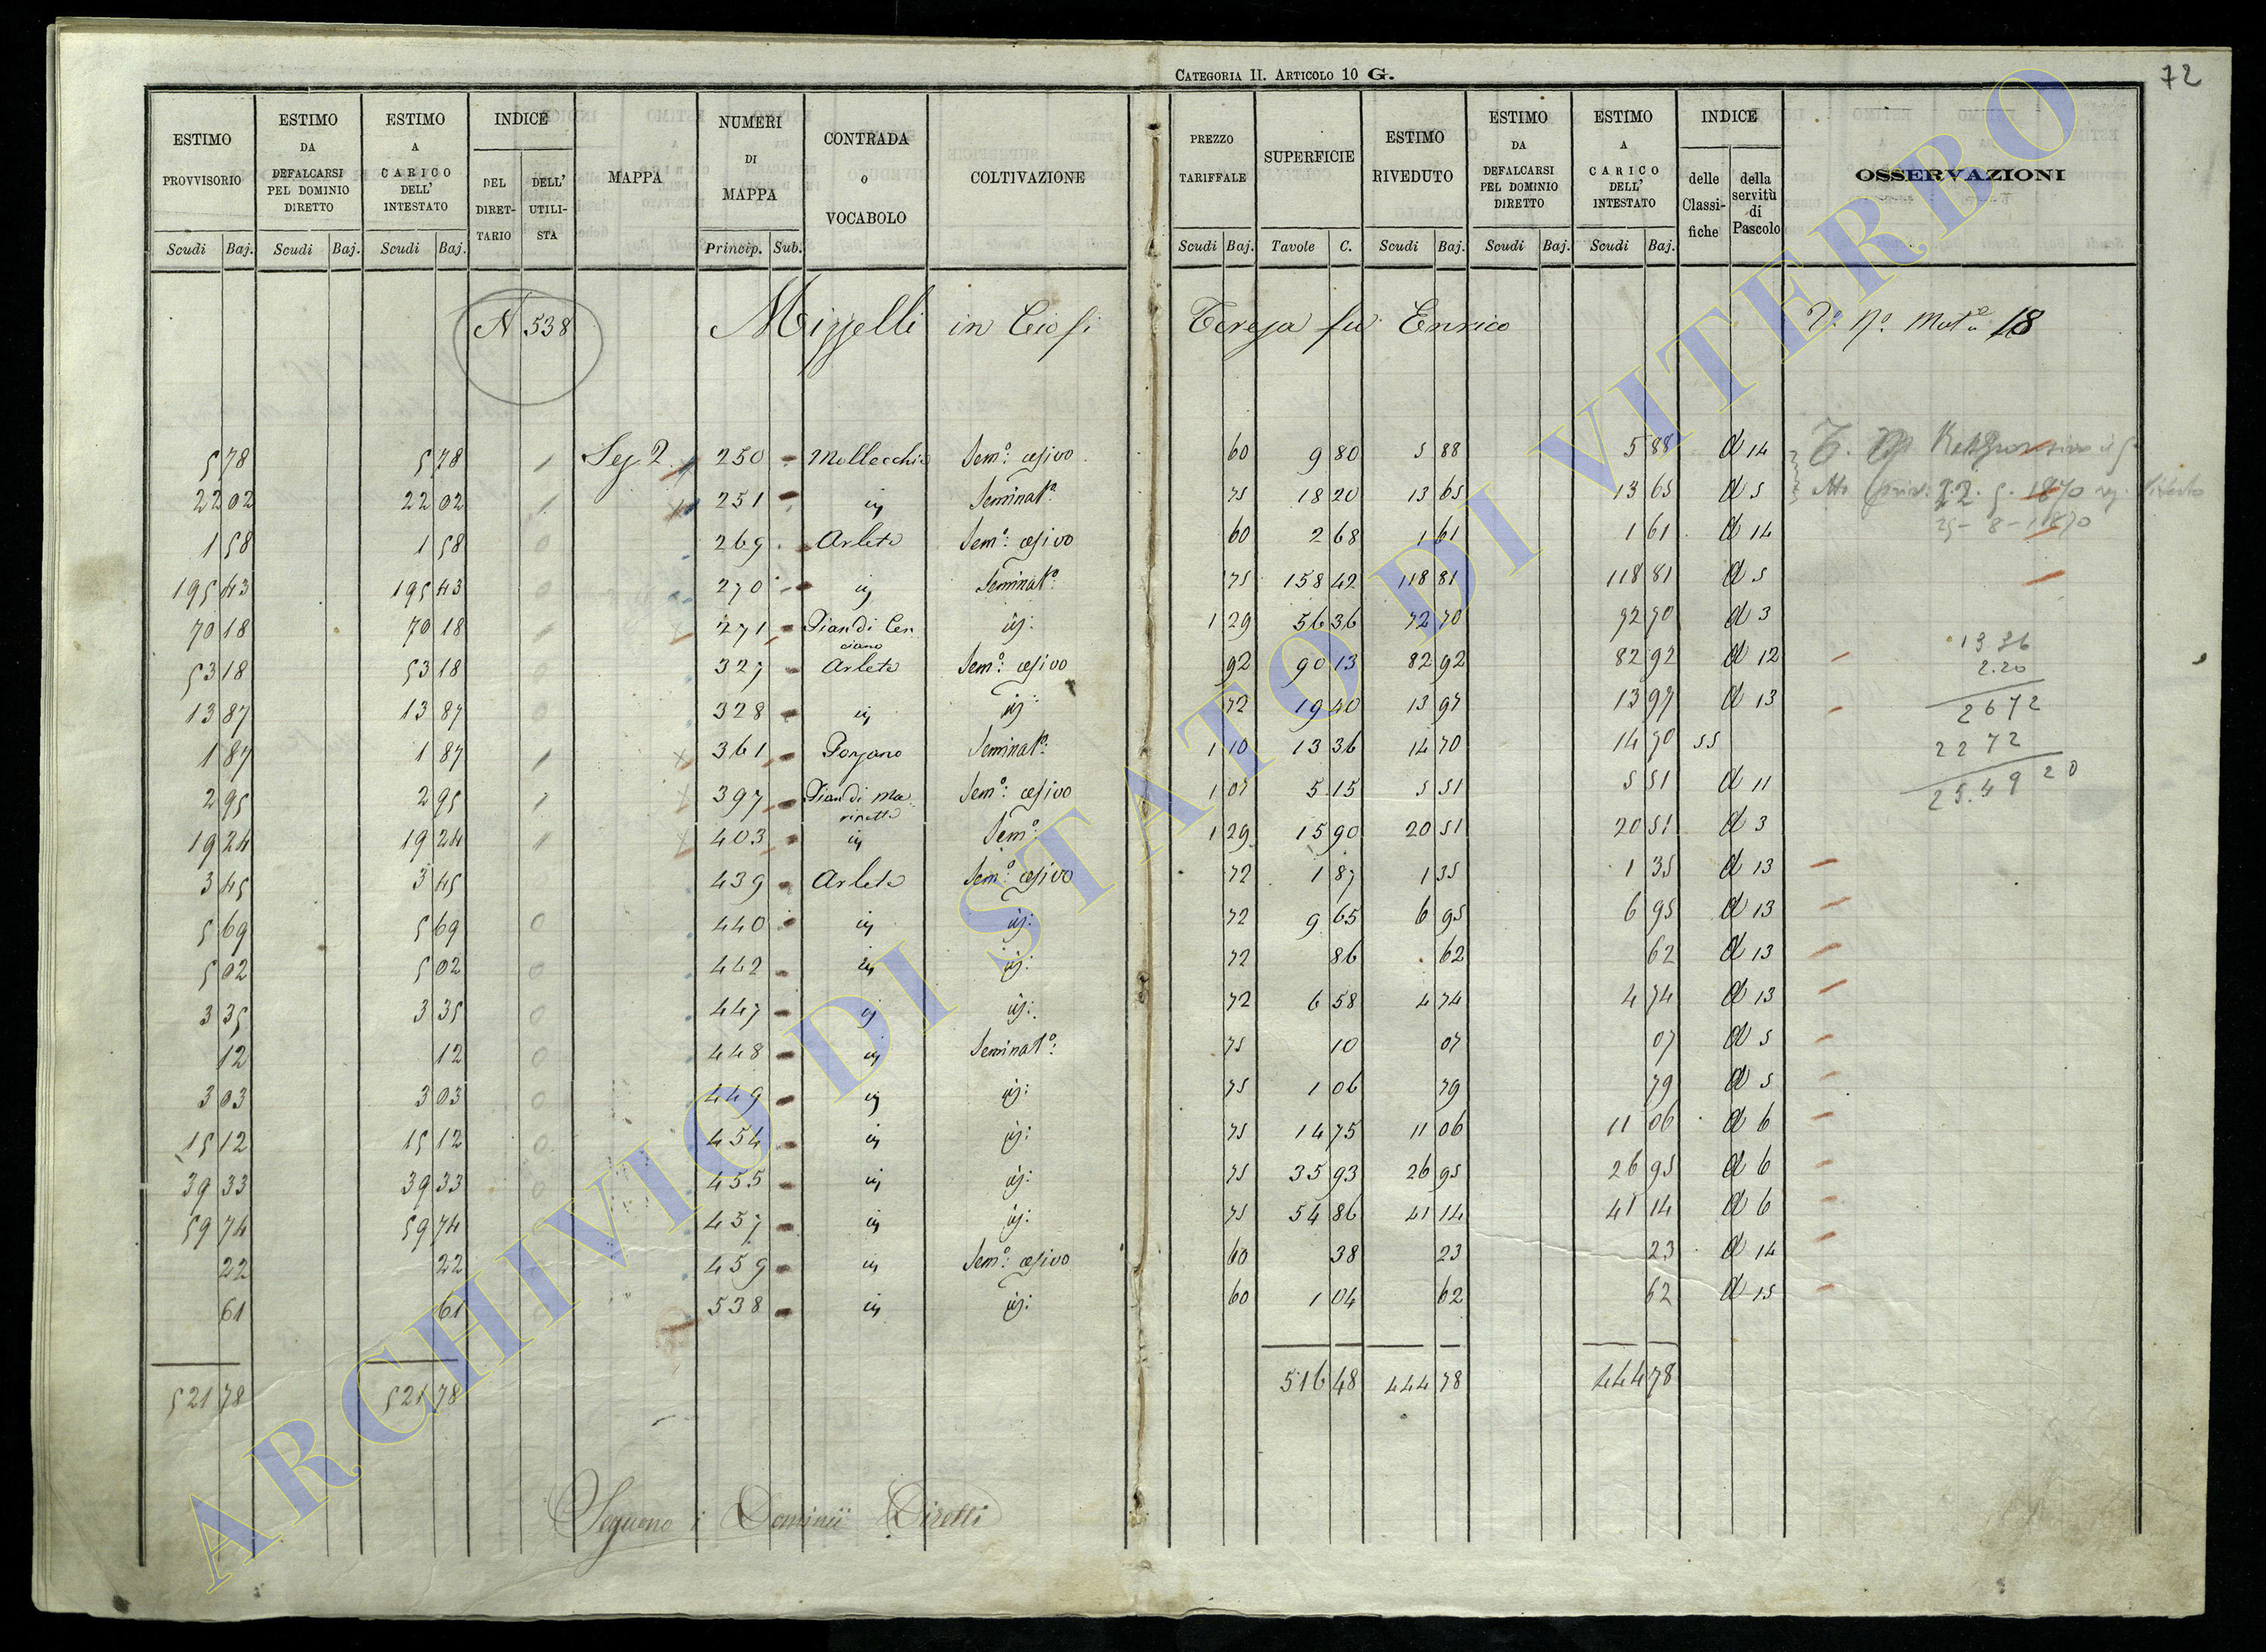 CATEGORIA II. ARTICOLO 10 G.
72
ESTIMO PROVVISORIO Scudi Baj. ESTIMO DA DEFALCARSI PEL DOMINIO DIRETTO Scudi Baj. ESTIMO A CARICO DELL' INTESTATO Scudi Baj. INDICE DEL DIRET-TARIO DELL' UTILI-STA MAPPA NUMERI DI MAPPA Princip. Sub. CONTRADA O VOCABOLO COLTIVAZIONE PREZZO TARIFFALE Scudi Baj. SUPERFICIE Tavole C. ESTIMO RIVEDUTO Scudi Baj. ESTIMO DA DEFALCARSI PEL DOMINIO DIRETTO Scudi Baj. ESTIMO A CARICO DELL' INTESTATO Scudi Baj. INDICE delle Classi-fiche della servitù di Pascolo OSSERVAZIONI
N 538 Mizzelli in Ciofi Teresa fu Enrico V. N.o Mat.a 18
5 78 5 78 Sez. 2 250 Mollecchie Sem.o cesivo 60 9 80 5 88 5 88 d 14
22 02 22 02 251 ij Seminat.o 75 18 20 13 65 13 65 d 5
1 58 1 58 269 Arlete Sem.o cesivo 60 2 68 1 61 1 61 d 14
25 - 8 - 1870
195 43 195 43 270 ij Seminat.o 75 158 42 118 81 118 81 d 5
70 18 70 18 271 Pian di Cen ciano ij: 1 29 56 36 72 70 72 70 d 3
53 18 53 18 327 Arlete Sem.o cesivo 92 90 13 82 92 82 92 d 12
13 36
2.20
13 87 13 87 328 ij ij: 72 19 40 13 97 13 97 d 13
2672
1 87 1 87 361 Porzano Seminat.o 1 10 13 36 14 70 14 70 55
2272
2 95 2 95 397 Pian di Ma rinetta Sem.o cesivo 1 07 5 15 5 51 5 51 d 11
25.49 20
19 24 19 24 403 ij Sem.o 1 29 15 90 20 51 20 51 d 3
3 45 3 45 439 Arlete Sem.o cesivo 72 1 87 1 35 1 35 d 13
5 69 5 69 440 ij ij: 72 9 65 6 95 6 95 d 13
5 02 5 02 442 ij ij: 72 86 62 62 d 13
3 35 3 35 447 ij ij: 72 6 58 4 74 4 74 d 13
12 12 448 ij Seminat.o 75 10 07 07 d 5
3 03 3 03 449 ij ij: 75 1 06 79 79 d 5
15 12 15 12 454 ij ij: 75 14 75 11 06 11 06 d 6
39 33 39 33 455 ij ij: 75 35 93 26 95 26 95 d 6
59 74 59 74 457 ij ij: 75 54 86 41 14 41 14 d 6
22 22 459 ij Sem.o cesivo 60 38 23 23 d 14
61 61 538 ij ij: 60 1 04 62 62 d 15
521 78 521 78 516 48 444 78 444 78
Seguono i Dominii Diretti
ARCHIVIO DI STATO DI VITERBO